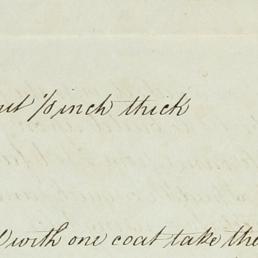 ut 1/8 inch thick
with one coat take the